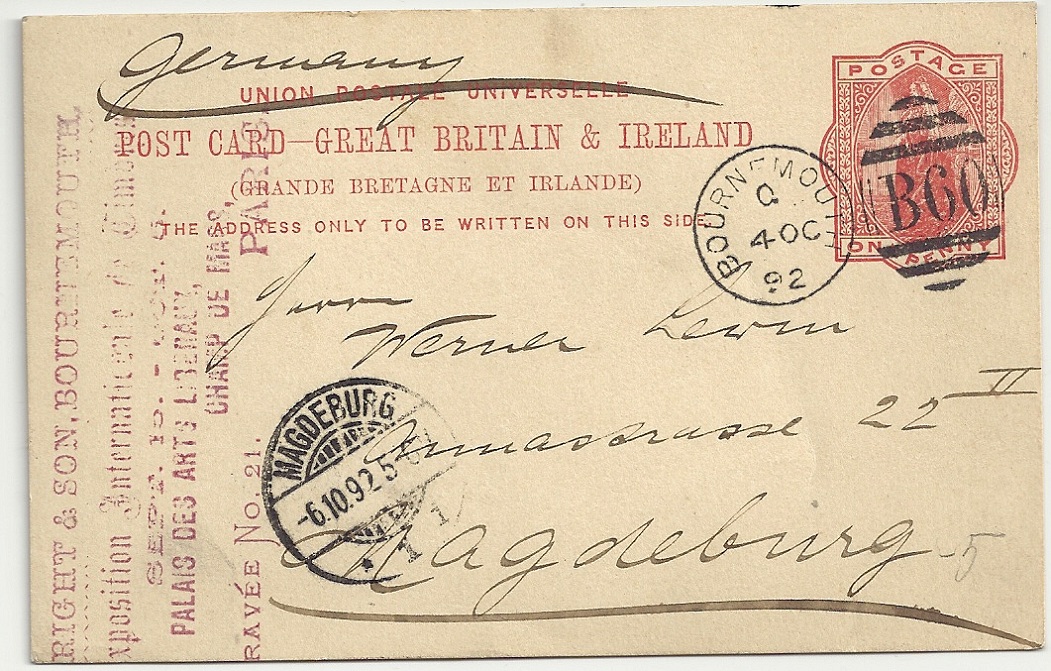 Germany
UNION POSTALE UNIVERSELLE
POST CARD—GREAT BRITAIN & IRELAND
(GRANDE BRETAGNE ET IRLANDE)
THE ADDRESS ONLY TO BE WRITTEN ON THIS SIDE
POSTAGE
ONE PENNY
B60
BOURNEMOUTH
4 OC
92
Herrn
Werner Lewin
Annastrasse 22 II
Magdeburg
5
MAGDEBURG
-6.10.92 5-6
1
RIGHT & SON, BOURNEMOUTH.
xposition Internationale de Timbres
SEPT. 15. - OCT. 5.
PALAIS DES ARTS LIBERAUX,
CHAMP DE MARS,
RAVÉE No. 21. PARIS